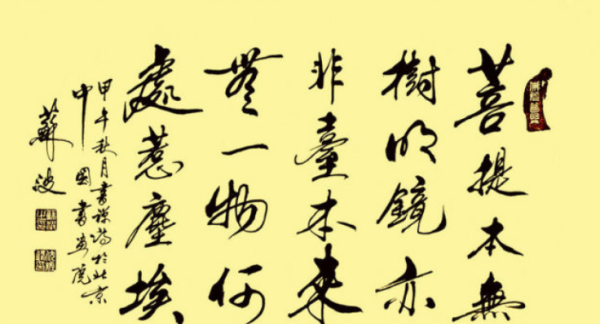 菩提本無
樹明鏡亦
非臺本来
無一物何
處惹塵埃
甲午秋月書於北京
中國書画院
蘇波